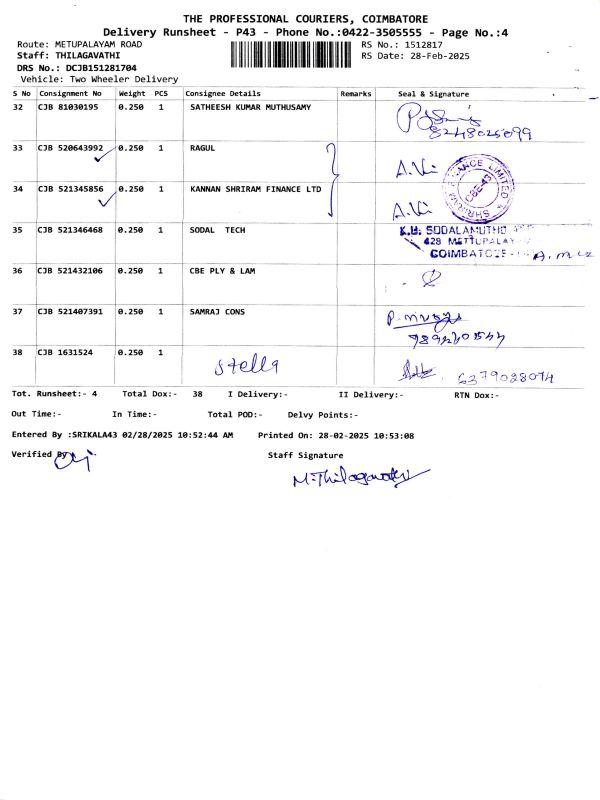 THE PROFESSIONAL COURIERS, COIMBATORE
Delivery Runsheet - P43 - Phone No.:0422-3505555 - Page No.:4
Route: METUPALAYAM ROAD RS No.: 1512817
Staff: THILAGAVATHI RS Date: 28-Feb-2025
DRS No.: DCJB151281704
Vehicle: Two Wheeler Delivery
S No Consignment No Weight PCS Consignee Details Remarks Seal & Signature
32 CJB 81030195 0.250 1 SATHEESH KUMAR MUTHUSAMY
8248025099
33 CJB 520643992 0.250 1 RAGUL
34 CJB 521345856 0.250 1 KANNAN SHRIRAM FINANCE LTD
SHRIRAM FINANCE LIMITED
CBE-43
35 CJB 521346468 0.250 1 SODAL TECH
428 METTUPALAY
COIMBATORE
36 CJB 521432106 0.250 1 CBE PLY & LAM
37 CJB 521407391 0.250 1 SAMRAJ CONS
38 CJB 1631524 0.250 1 Stella
6379028074
Tot. Runsheet:- 4 Total Dox:- 38 I Delivery:- II Delivery:- RTN Dox:-
Out Time:- In Time:- Total POD:- Delvy Points:-
Entered By :SRIKALA43 02/28/2025 10:52:44 AM Printed On: 28-02-2025 10:53:08
Verified By Staff Signature
M. Thilagavathi